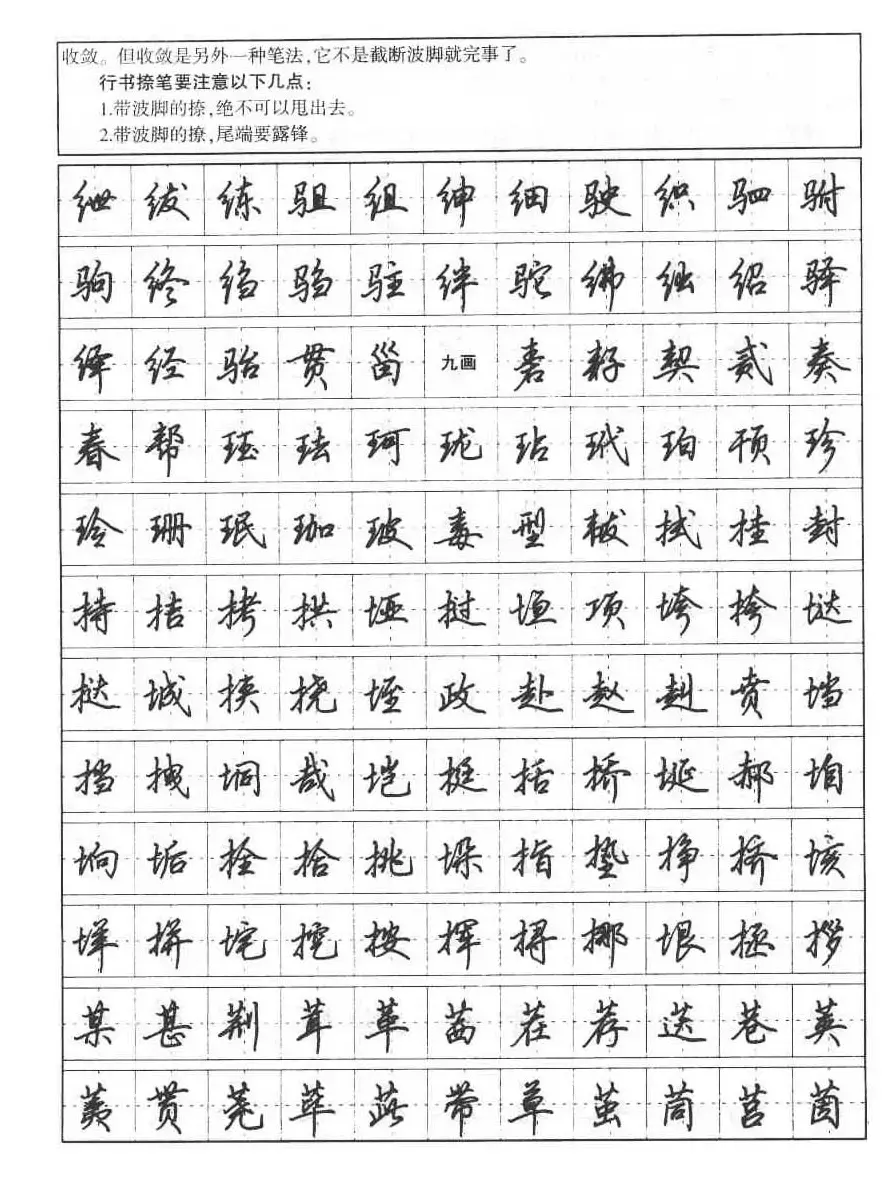 收敛。但收敛是另外一种笔法,它不是截断波脚就完事了。
行书捺笔要注意以下几点:
1.带波脚的捺,绝不可以甩出去。
2.带波脚的撩,尾端要露锋。
绁 绂 练 驵 组 绅 细 驶 织 驷 驸
驹 终 绉 驺 驻 绊 驼 绋 绌 绍 驿
绎 经 骀 贯 甾 九画 砉 耔 契 贰 奏
春 帮 珏 珐 珂 珑 玷 玳 珀 顸 珍
玲 珊 珉 珈 玻 毒 型 拭 挂 封
持 拮 拷 拱 垭 挝 垣 项 垮 挎 垯
挞 城 挟 挠 垤 政 赴 赵 赳 贲 垱
挡 拽 垌 哉 垲 挺 括 挢 埏 郝 垍
垧 垢 拴 拾 挑 垛 指 垫 挣 挤 垓
垟 拼 垞 挖 按 挥 挦 挪 垠 拯 拶
某 甚 荆 茸 革 茜 茬 荐 巷 英
荑 贳 荛 荜 茈 带 草 茧 茼 莒 茵